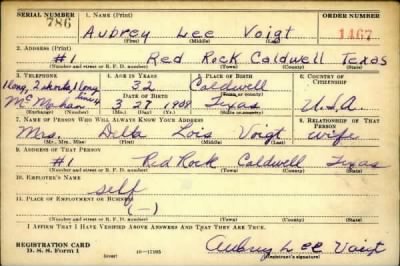 SERIAL NUMBER 1. NAME (Print) ORDER NUMBER
786 Aubrey Lee Voigt 1467
(First) (Middle) (Last)
2. ADDRESS (Print)
#1 Red Rock Caldwell Texas
(Number and street or R. F. D. number) (Town) (County) (State)
3. TELEPHONE 4. AGE IN YEARS 5. PLACE OF BIRTH 6. COUNTRY OF CITIZENSHIP
1 long, 2 shorts, 1 long 32 Caldwell
McMahan DATE OF BIRTH (Town or county)
3 27 1908 Texas U.S.A.
(Exchange) (Number) (Mo.) (Day) (Yr.) (State or country)
7. NAME OF PERSON WHO WILL ALWAYS KNOW YOUR ADDRESS 8. RELATIONSHIP OF THAT PERSON
Mrs. Della Lois Voigt wife
(Mr., Mrs., Miss) (First) (Middle) (Last)
9. ADDRESS OF THAT PERSON
#1 Red Rock Caldwell Texas
(Number and street or R. F. D. number) (Town) (County) (State)
10. EMPLOYER'S NAME
self
11. PLACE OF EMPLOYMENT OR BUSINESS
(-)
(Number and street or R. F. D. number) (Town) (County) (State)
I AFFIRM THAT I HAVE VERIFIED ABOVE ANSWERS AND THAT THEY ARE TRUE.
REGISTRATION CARD
D. S. S. Form 1 (over) 16—17105 Aubrey Lee Voigt
(Registrant's signature)